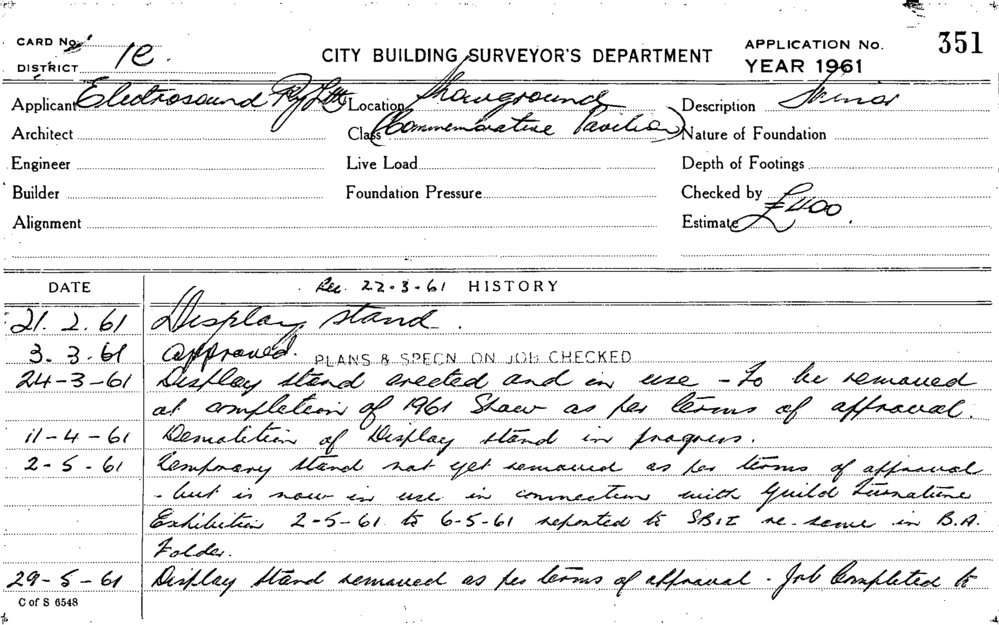 CARD No.
DISTRICT 1e.
CITY BUILDING SURVEYOR'S DEPARTMENT
APPLICATION No. 351
YEAR 1961
Applicant Electrosound Pty Ltd Location Showground Description Minor
Architect Class (Commemorative Pavilion) Nature of Foundation
Engineer Live Load Depth of Footings
Builder Foundation Pressure Checked by
Alignment Estimate £400.
DATE Rec. 22-3-61 HISTORY
21.2.61 Display stand.
3.3.61 Approved. PLANS & SPECN ON JOB CHECKED
24-3-61 Display stand erected and in use - To be removed
at completion of 1961 Show as per terms of approval.
11-4-61 Demolition of Display stand in progress.
2-5-61 Temporary stand not yet removed as per terms of approval
- but is now in use in connection with Guild Furnature
Exhibition 2-5-61 to 6-5-61 reported to SBI re-same in B.A.
Folder.
29-5-61 Display stand removed as per terms of approval. Job Completed to
C of S 6548